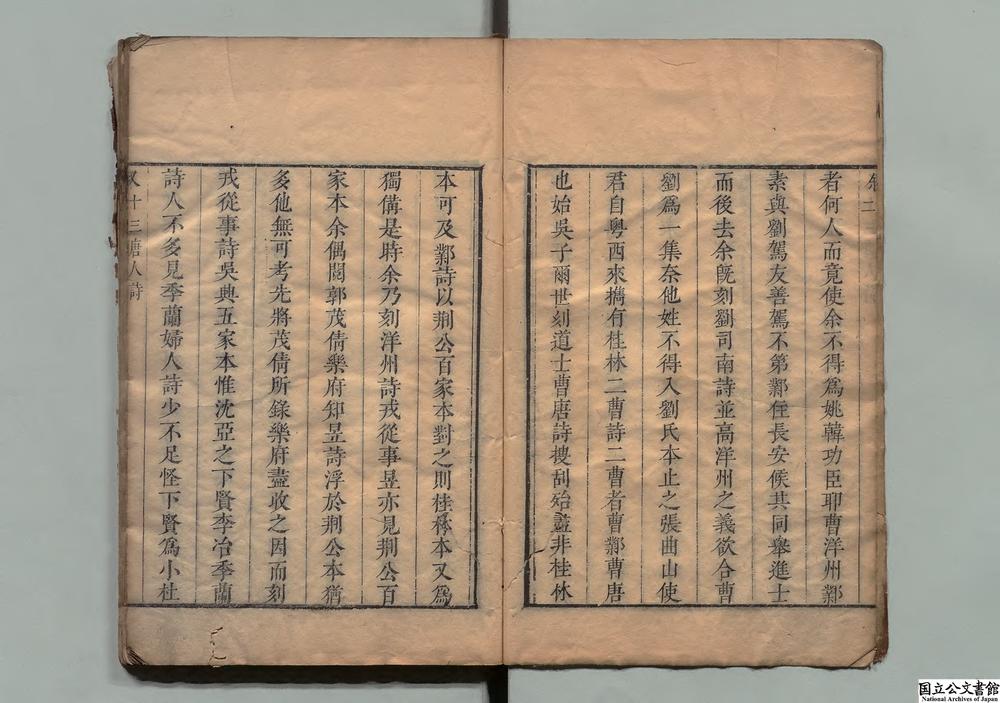 敘二
者何人而竟使余不得爲姚韓功臣耶曹洋州鄴
素與劉駕友善駕不第鄴在長安候共同舉進士
而後去余旣刻劉司南詩並高洋州之義欲合曹
劉爲一集奈他姓不得入劉氏本止之張曲山使
君自粵西來攜有桂林二曹詩二曹者曹鄴曹唐
也始吳子爾世刻道士曹唐詩搜刮殆盡非桂林
本可及鄴詩以荆公百家本對之則桂林本又爲
獨備是時余乃刻洋州詩戎從事昱亦見荆公百
家本余偶閱郭茂倩樂府知昱詩浮於荆公本猶
多他無可考先將茂倩所錄樂府盡收之因而刻
戎從事詩吳典五家本惟沈亞之下賢李冶季蘭
詩人不多見季蘭婦人詩少不足怪下賢爲小杜
又十三唐人詩
国立公文書館
National Archives of Japan